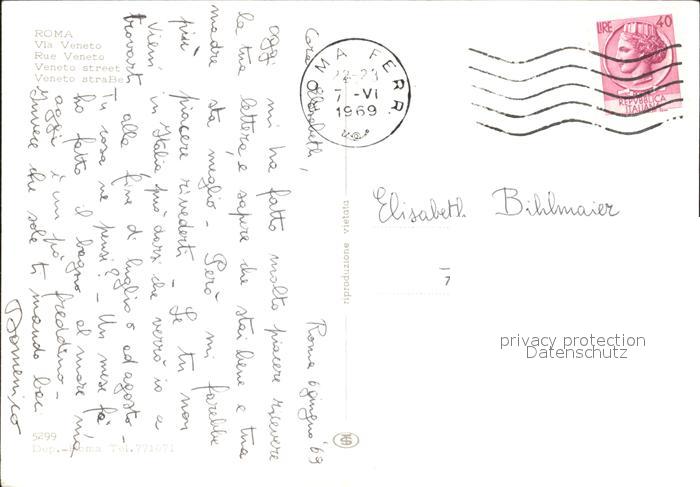 ROMA
Via Veneto
Rue Veneto
Veneto street
Veneto straße
Roma 6 giugno '69
Cara Elisabeth,
oggi mi ha fatto molto piacere ricevere
la tua lettera, e sapere che stai bene e tua
madre sta meglio - Però mi farebbe
più piacere rivederti - Se tu non
vieni in Italia può darsi che verrò io a
trovarti alla fine di luglio o ad agosto -
Tu cosa ne pensi? - Un mese fa
ho fatto il bagno al mare ma
oggi è un pò freddino -
Invece che sole ti mando baci
Domenico
5299
Dep.-Roma Tel.771071
riproduzione vietata
ROMA FERR.
22-23
7-VI
1969
LIRE 40
REPVBBLICA
ITALIANA
Elisabeth Bihlmaier
7
privacy protection
Datenschutz